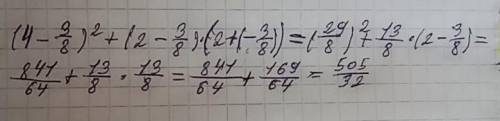 (4-3/8)²+(2-3/8)·(2+(-3/8))=(29/8)²+13/8·(2-3/8)=
841/64+13/8·13/8=841/64+169/64=505/32